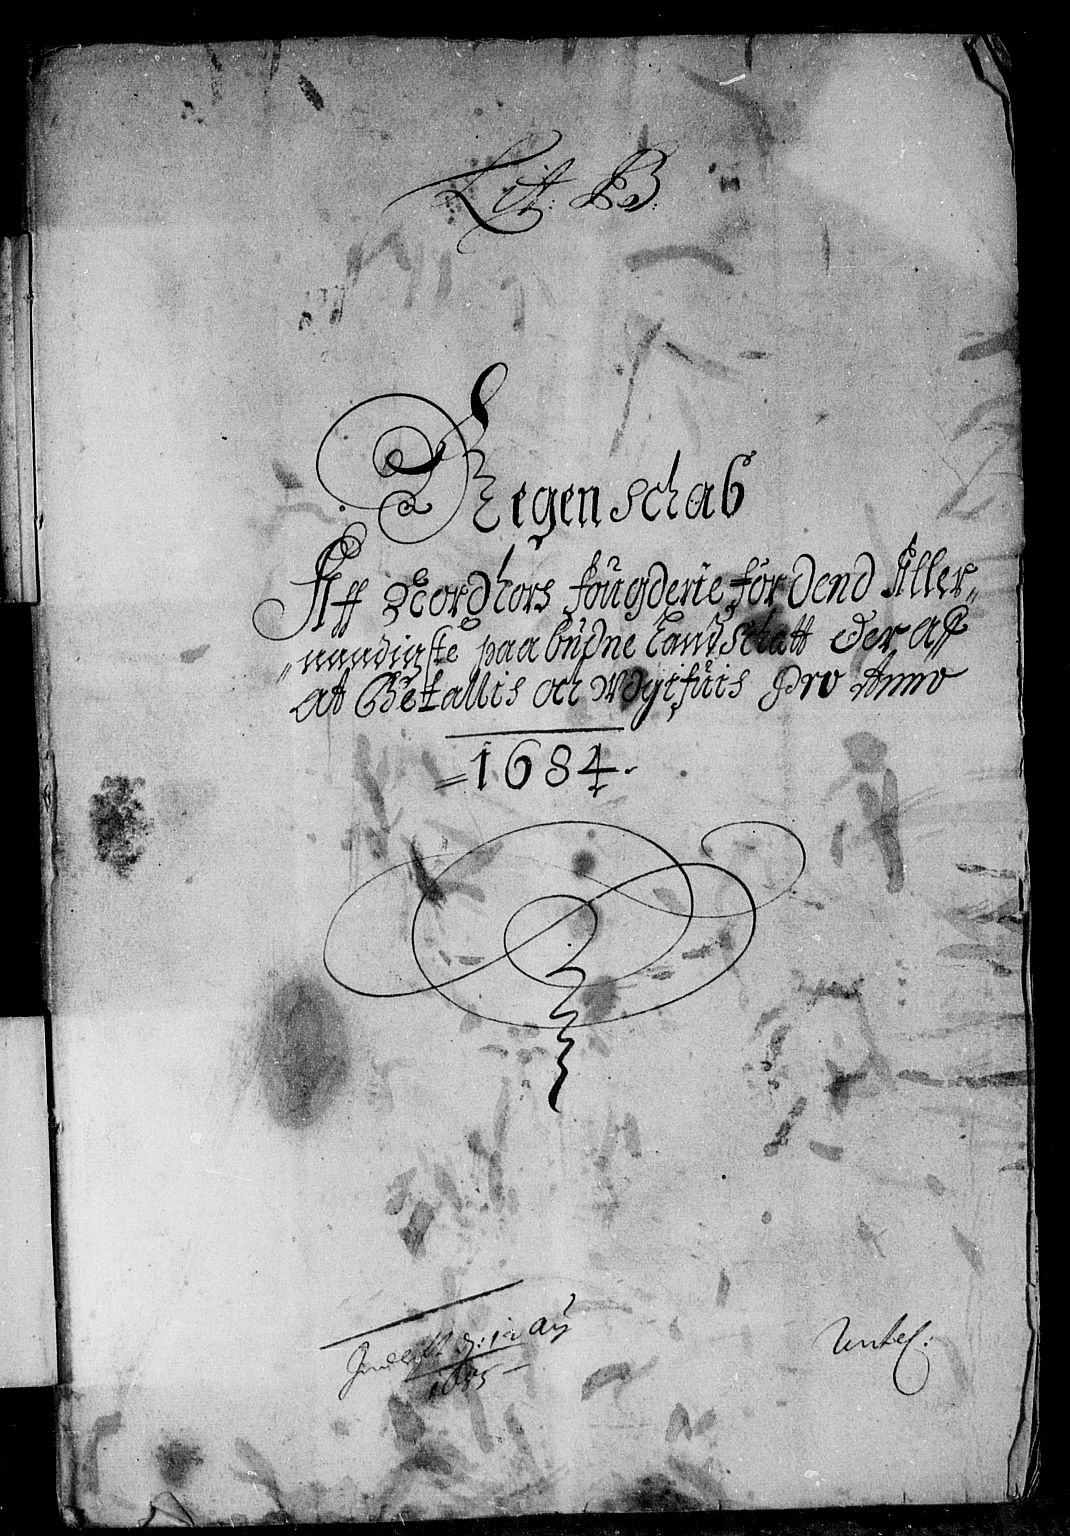 Lit: B:
Regenschab
Aff Nordhors fougderie for Dend Aller„
„naadigste paabudne Landschatt Der aff
at Betallis och Wdgifuis Pro Anno
= 1684.
d: 12 
1685